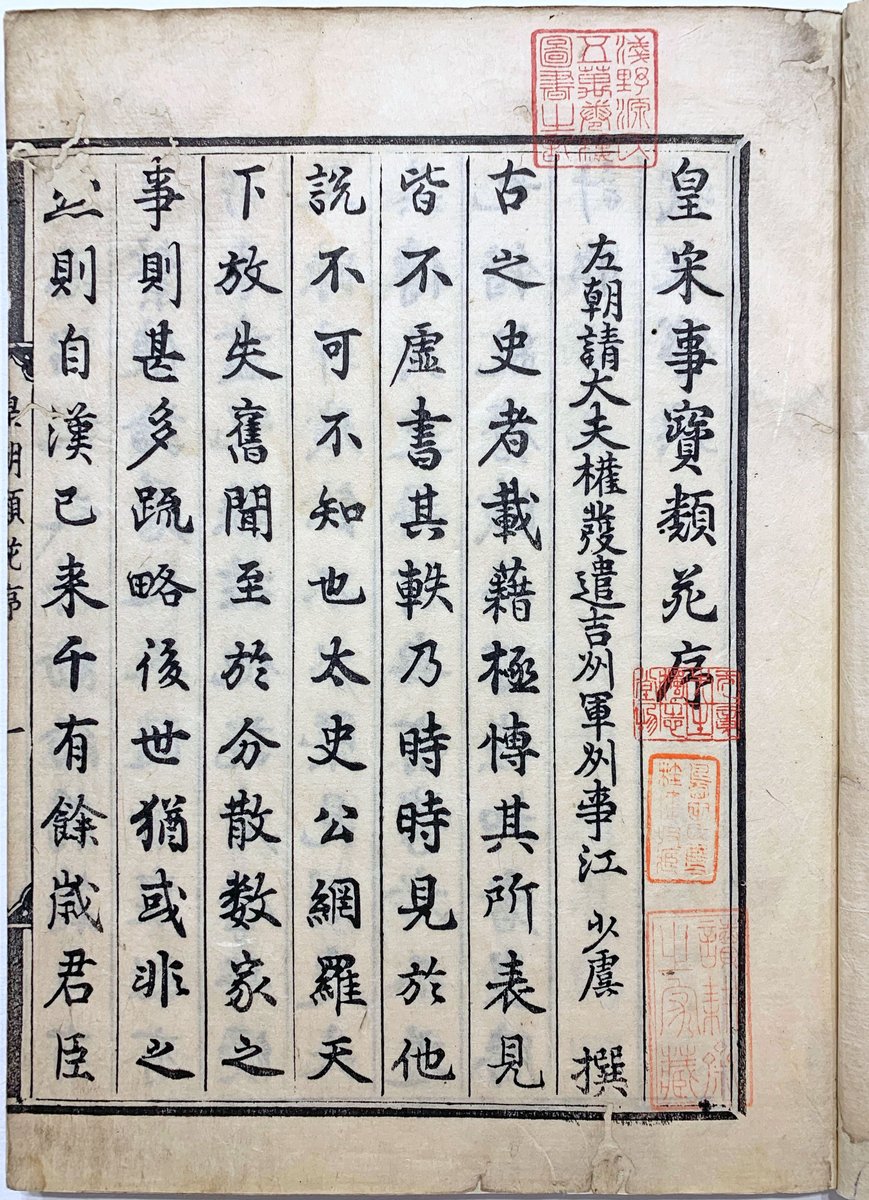 淺野源氏
五萬卷樓
圖書之記
皇宋事寶類苑序
讀耕齋
之家藏
左朝請大夫權發遣吉州軍州事江 少虞 撰
古之史者載藉極慱其所表見
皆不虛書其軼乃時時見於他
說不可不知也太史公網羅天
下放失舊聞至於分散数家之
事則甚多疏略後世猶或非之
然則自漢已来千有餘歳君臣
皇朝類苑序 一